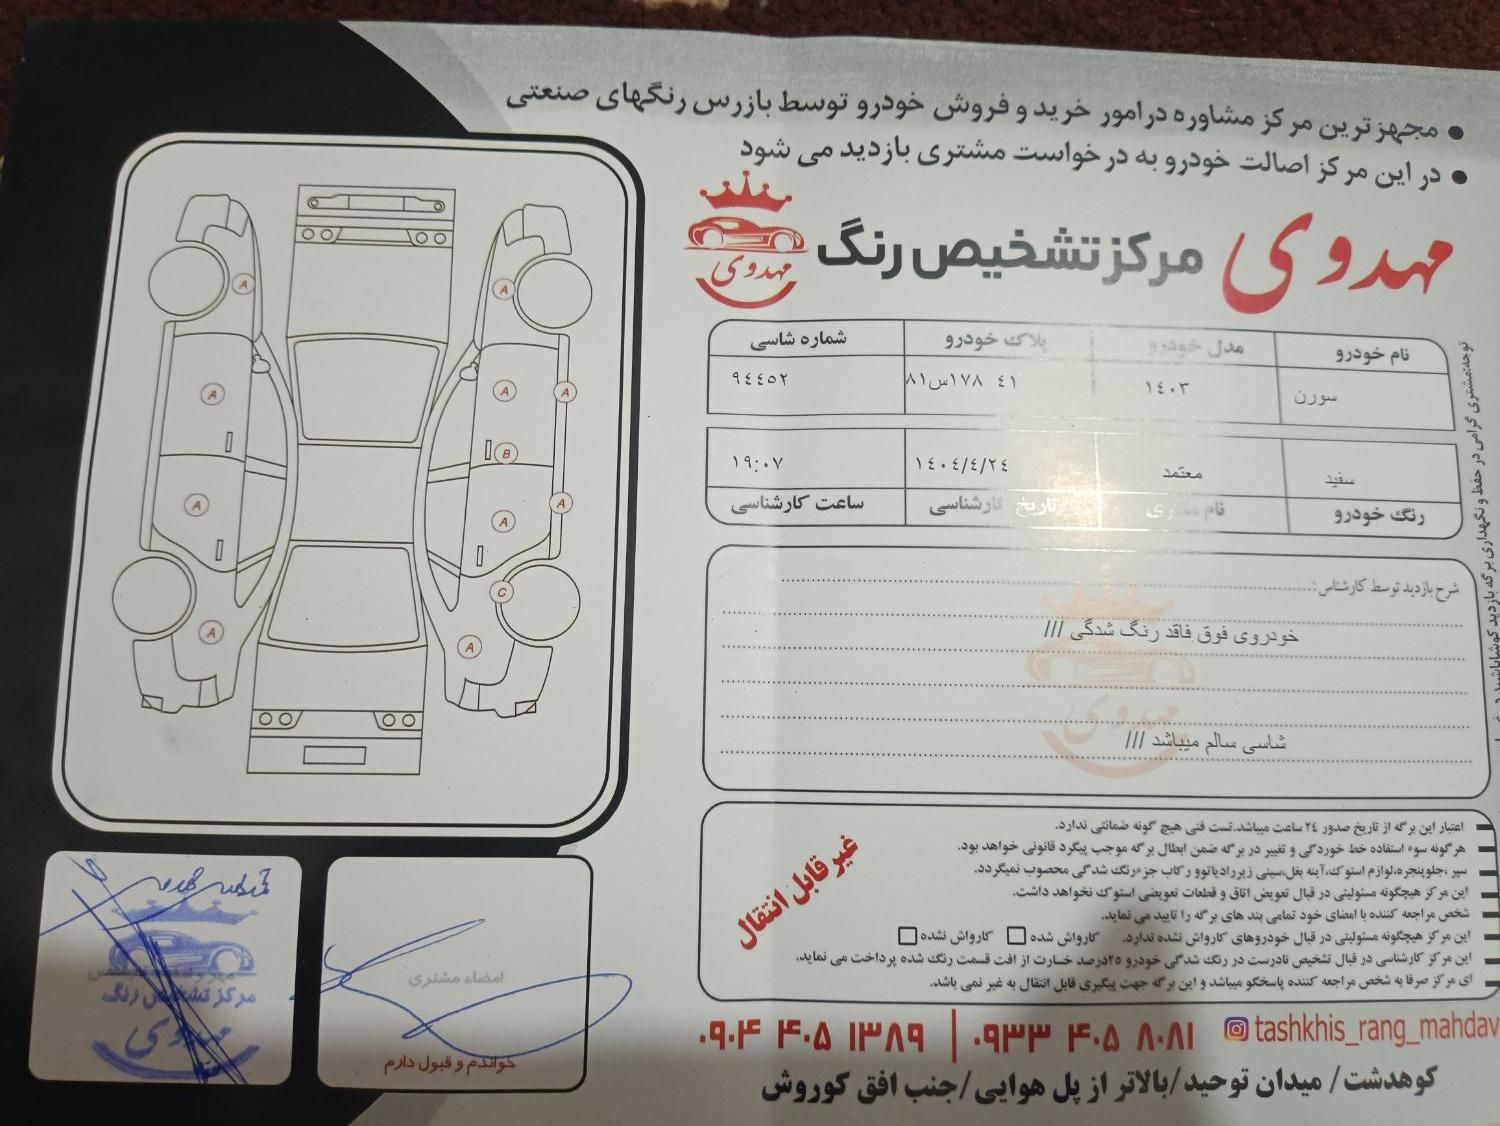 • مجهزترین مرکز مشاوره در امور خرید و فروش خودرو توسط بازرس رنگهای صنعتی
• در این مرکز اصالت خودرو به درخواست مشتری بازدید می شود
مهدوی مرکز تشخیص رنگ
مهدوی
نام خودرو مدل خودرو پلاک خودرو شماره شاسی
سورن ۱۴۰۳ ۴۱ ۱۷۸س۸۱ ۹۴۴۵۲
سفید معتمد ۱۴۰۴/۴/۲۴ ۱۹:۰۷
رنگ خودرو نام مشتری تاریخ کارشناسی ساعت کارشناسی
توجه:مشتری گرامی در حفظ و نگهداری برگه بازدید کوشا باشید
شرح بازدید توسط کارشناس:
خودروی فوق فاقد رنگ شدگی ///
شاسی سالم میباشد ///
مهدوی
A
A
A
A
A
B
A
A
A
C
A
A
غیر قابل انتقال
اعتبار این برگه از تاریخ صدور ۲۴ ساعت میباشد.تست فنی هیچ گونه ضمانتی ندارد.
هرگونه سوء استفاده خط خوردگی و تغییر در برگه ضمن ابطال برگه موجب پیگرد قانونی خواهد بود.
سپر ،جلوپنجره،لوازم استوک،آینه بغل،سینی زیررادیاتوو رکاب جزءرنگ شدگی محصوب نمیگردد.
این مرکز هیچگونه مسئولیتی در قبال تعویض اتاق و قطعات تعویضی استوک نخواهد داشت.
شخص مراجعه کننده با امضای خود تمامی بند های برگه را تایید می نماید.
این مرکز هیچگونه مسئولیتی در قبال خودروهای کارواش نشده ندارد. کارواش شده کارواش نشده
این مرکز کارشناسی در قبال تشخیص نادرست در رنگ شدگی خودرو ۲۵درصد خسارت از افت قسمت رنگ شده پرداخت می نماید.
ای مرکز صرفا به شخص مراجعه کننده پاسخگو میباشد و این برگه جهت پیگیری قابل انتقال به غیر نمی باشد.
امضاء مشتری
خواندم و قبول دارم
مرکز تشخیص رنگ
مهدوی
۰۹۰۴ ۴۰۵ ۱۳۸۹ | ۰۹۳۳ ۴۰۵ ۸۰۸۱ tashkhis_rang_mahdav
کوهدشت/ میدان توحید/بالاتر از پل هوایی/جنب افق کوروش